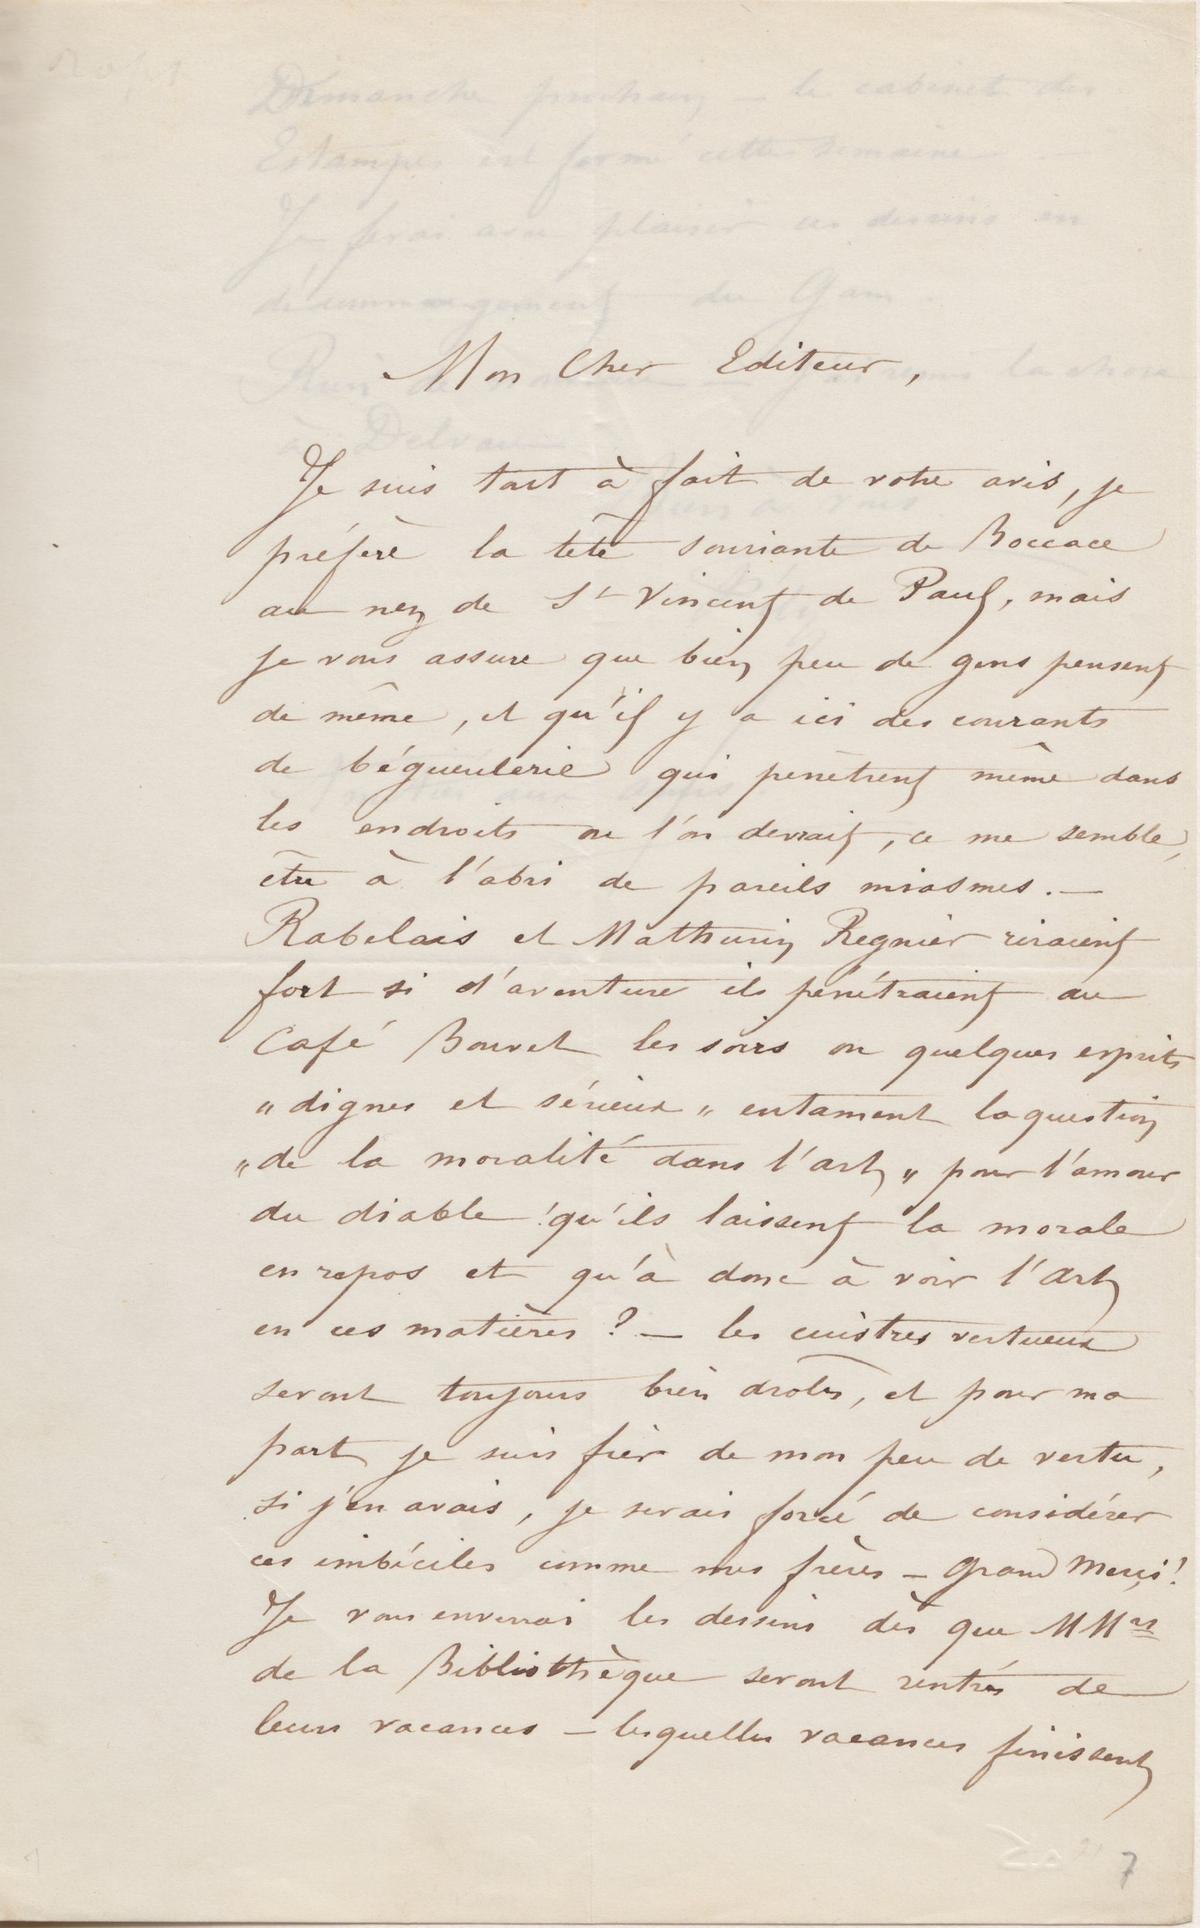 Mon Cher Editeur,
Je suis tout à fait de votre avis, je
préfère la tête souriante de Boccace
au nez de St Vincent de Paul, mais
je vous assure que bien peu de gens pensent
de même, et qu'il y a ici des courants
de bégueulerie qui penètrent même dans
les endroits ou l'on devrait, ce me semble,
être à l'abri de pareils miasmes. —
Rabelais et Mathurin Regnier riraient
fort si d'aventure ils pénétraient au
Café Bouvet les soirs ou quelques esprits
"dignes et sérieux" entament la question
"de la moralité dans l'art" pour l'amour
du diable ! qu'ils laissent la morale
en repos et qu'à donc à voir l'art
en ces matières ? — les cuistres vertueux
seront toujours bien drôles, et pour ma
part je suis fier de mon peu de vertu,
si j'en avais, je serais forcé de considérer
ces imbéciles comme mes frères — Grand Merci !
Je vous enverrai les dessins dès que MMrs
de la Bibliothèque seront rentrés de
leurs vacances — lesquelles vacances finissent
7